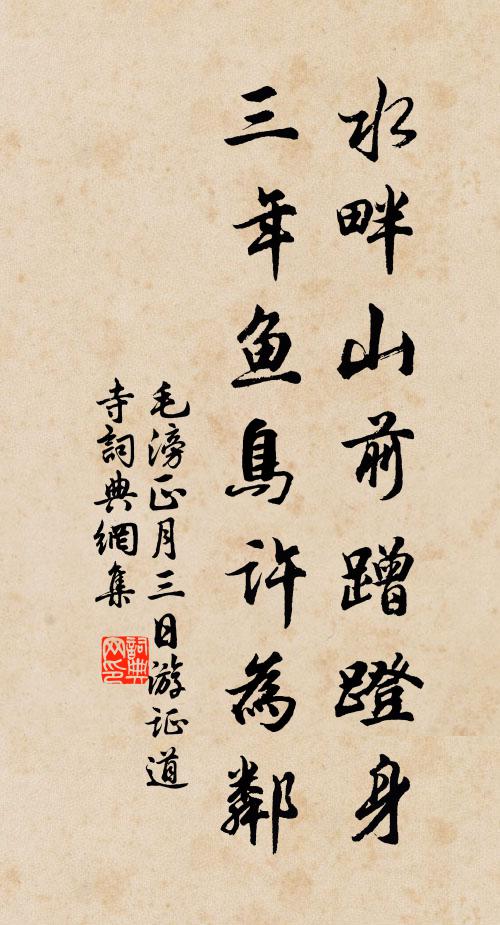 水畔山前蹭蹬身
三年鱼鳥許為鄰
毛滂正月三日游证道
寺詞典網集
詞典网印